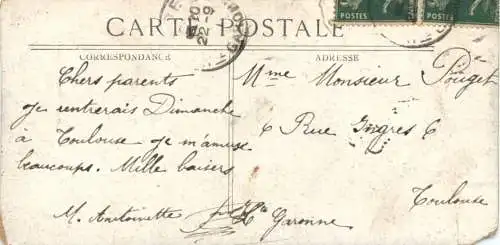 CARTE POSTALE
CORRESPONDANCE
ADRESSE
POSTES
POSTES
22-9
Chers parents
je rentrerais Dimanche
à Toulouse je m'amuse
beaucoups. Mille baisers
M. Antoinette
Mme Monsieur Pouget
6 Rue Ingres 6
Toulouse
Hte Garonne